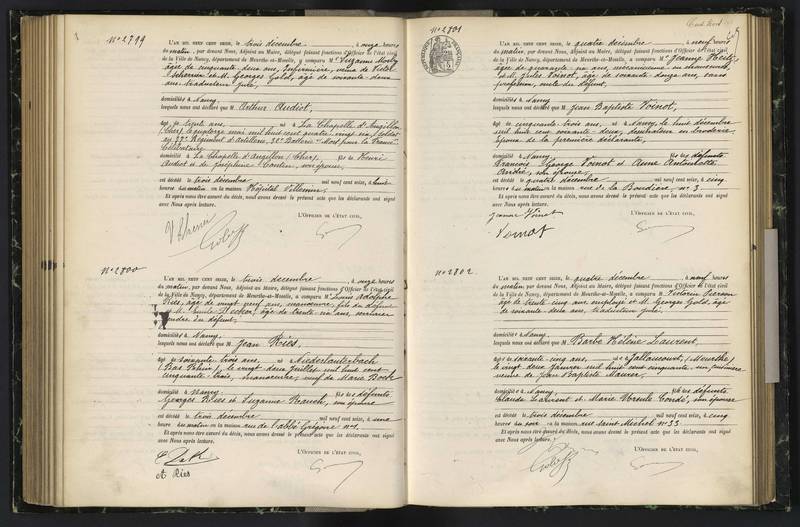 N° 2799
L'AN MIL NEUF CENT SEIZE, le trois décembre, à onze heures
du matin, par devant Nous, Adjoint au Maire, délégué faisant fonctions d'Officier de l'état civil
de la Ville de Nancy, département de Meurthe-et-Moselle, a comparu M. Suzanne
âgée de cinquante deux ans, Infirmière, veuve de Victor
et M. Georges Gold, âgé de soixante deux
ans, traducteur juré,
domiciliés à Nancy
lesquels nous ont déclaré que M. Arthur Audiot,
âgé de trente ans, né à La Chapelle d'Angillon
(Cher) le quatorze mai mil huit cent quatre vingt six, soldat
au 37e Régiment d'Artillerie, 32e Batterie "Mort pour la France"
Célibataire
domicilié à La Chapelle d'Angillon (Cher), fils de
Audiot et de Joséphine, son épouse,
est décédé le trois décembre mil neuf cent seize, à huit
heures du matin en la maison Hôpital Villemin,
Et après nous être assuré du décès, nous avons dressé le présent acte que les déclarants ont signé
avec Nous après lecture.
L'OFFICIER DE L'ÉTAT CIVIL,
N° 2800
L'AN MIL NEUF CENT SEIZE, le trois décembre, à onze heures
du matin, par devant Nous, Adjoint au Maire, délégué faisant fonctions d'Officier de l'état civil
de la Ville de Nancy, département de Meurthe-et-Moselle, a comparu M. Louis Adolphe
Riès, âgé de vingt neuf ans, manœuvre, fils du défunt
et M. Emile, âgé de trente six ans, serrurier
gendre du défunt,
domiciliés à Nancy
lesquels nous ont déclaré que M. Jean Riès,
âgé de soixante trois ans, né à Niederlauterbach
(Bas Rhin), le vingt deux juillet mil huit cent
cinquante trois, manœuvre, veuf de Marie Bock
domicilié à Nancy fils des défunts
Georges Riès et Suzanne Rauch, son épouse
est décédé le trois décembre mil neuf cent seize, à une
heure du matin en la maison rue de l'abbé Grégoire n° 1.
Et après nous être assuré du décès, nous avons dressé le présent acte que les déclarants ont signé
avec Nous après lecture.
L'OFFICIER DE L'ÉTAT CIVIL,
A Riès
N° 2801
L'AN MIL NEUF CENT SEIZE, le quatre décembre, à neuf heures
du matin, par devant Nous, Adjoint au Maire, délégué faisant fonctions d'Officier de l'état civil
de la Ville de Nancy, département de Meurthe-et-Moselle, a comparu M. Jeanne
âgée de quarante six ans, mécanicienne en chaussures,
et M. Jules Voinot, âgé de soixante douze ans, sans
profession, oncle du défunt,
domiciliés à Nancy
lesquels nous ont déclaré que M. Jean Baptiste Voinot,
âgé de cinquante trois ans, né à Nancy, le huit décembre
mil huit cent soixante deux, dessinateur en broderie
époux de la première déclarante,
domicilié à Nancy fils des défunts
François George Voinot et Anne Antoinette
André, son épouse,
est décédé le quatre décembre mil neuf cent seize, à cinq
heures du matin en la maison rue de la Boudière, n° 3.
Et après nous être assuré du décès, nous avons dressé le présent acte que les déclarants ont signé
avec Nous après lecture.
L'OFFICIER DE L'ÉTAT CIVIL,
Jeanne Voinot
Voinot
N° 2802
L'AN MIL NEUF CENT SEIZE, le quatre décembre, à neuf heures
du matin, par devant Nous, Adjoint au Maire, délégué faisant fonctions d'Officier de l'état civil
de la Ville de Nancy, département de Meurthe-et-Moselle, a comparu M. Victorin Pierson
âgé de trente cinq ans employé et M. Georges Gold, âgé
de soixante deux ans, traducteur juré,
domiciliés à Nancy
lesquels nous ont déclaré que M. Barbe Hélène Laurent,
âgée de soixante cinq ans, née à Jallaucourt, (Meurthe)
le vingt deux janvier mil huit cent cinquante un,
veuve de Jean Baptiste Maurer,
domiciliée à Nancy fille des défunts
Claude Laurent et Marie Ursule Condé, son épouse
est décédée le trois décembre mil neuf cent seize, à cinq
heures du soir en la maison rue Saint Michel n° 33
Et après nous être assuré du décès, nous avons dressé le présent acte que les déclarants ont signé
avec Nous après lecture.
L'OFFICIER DE L'ÉTAT CIVIL,